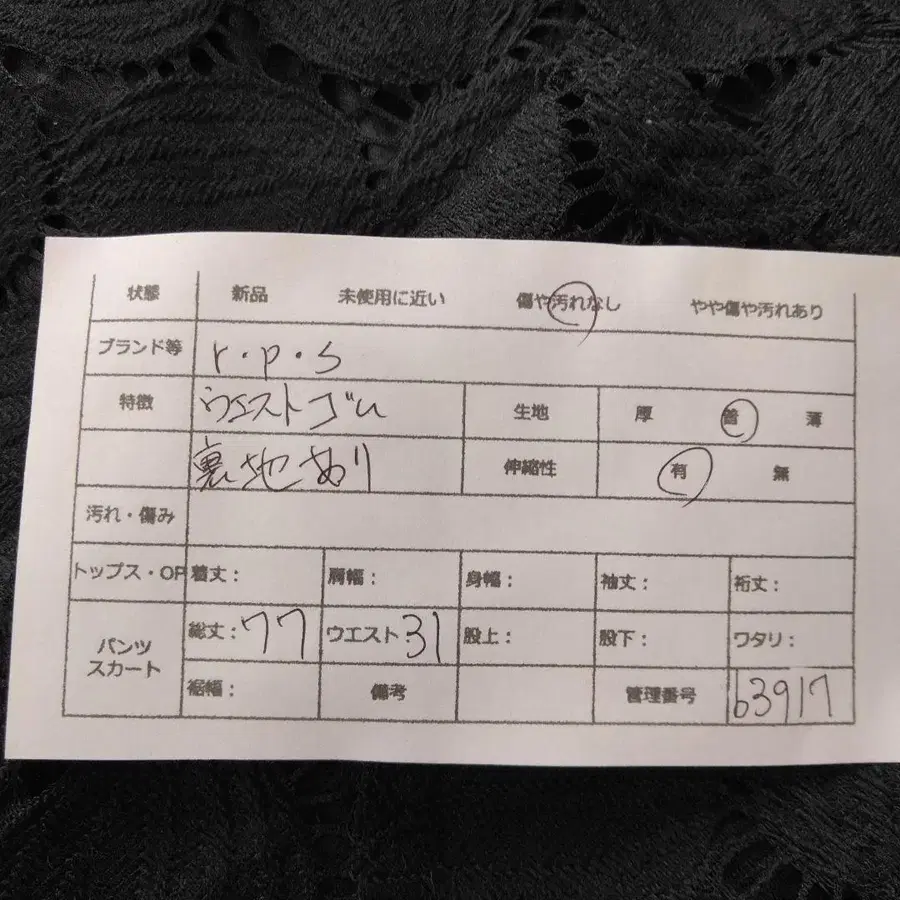 状態 新品 未使用に近い 傷や汚れなし やや傷や汚れあり
ブランド等 r・p・s
特徴 ウエストゴム 生地 厚 普 薄
裏地あり 伸縮性 有 無
汚れ・傷み
トップス・OP 着丈: 肩幅: 身幅: 袖丈: 裄丈:
パンツ スカート 総丈:77 ウエスト31 股上: 股下: ワタリ:
裾幅: 備考 管理番号 63917